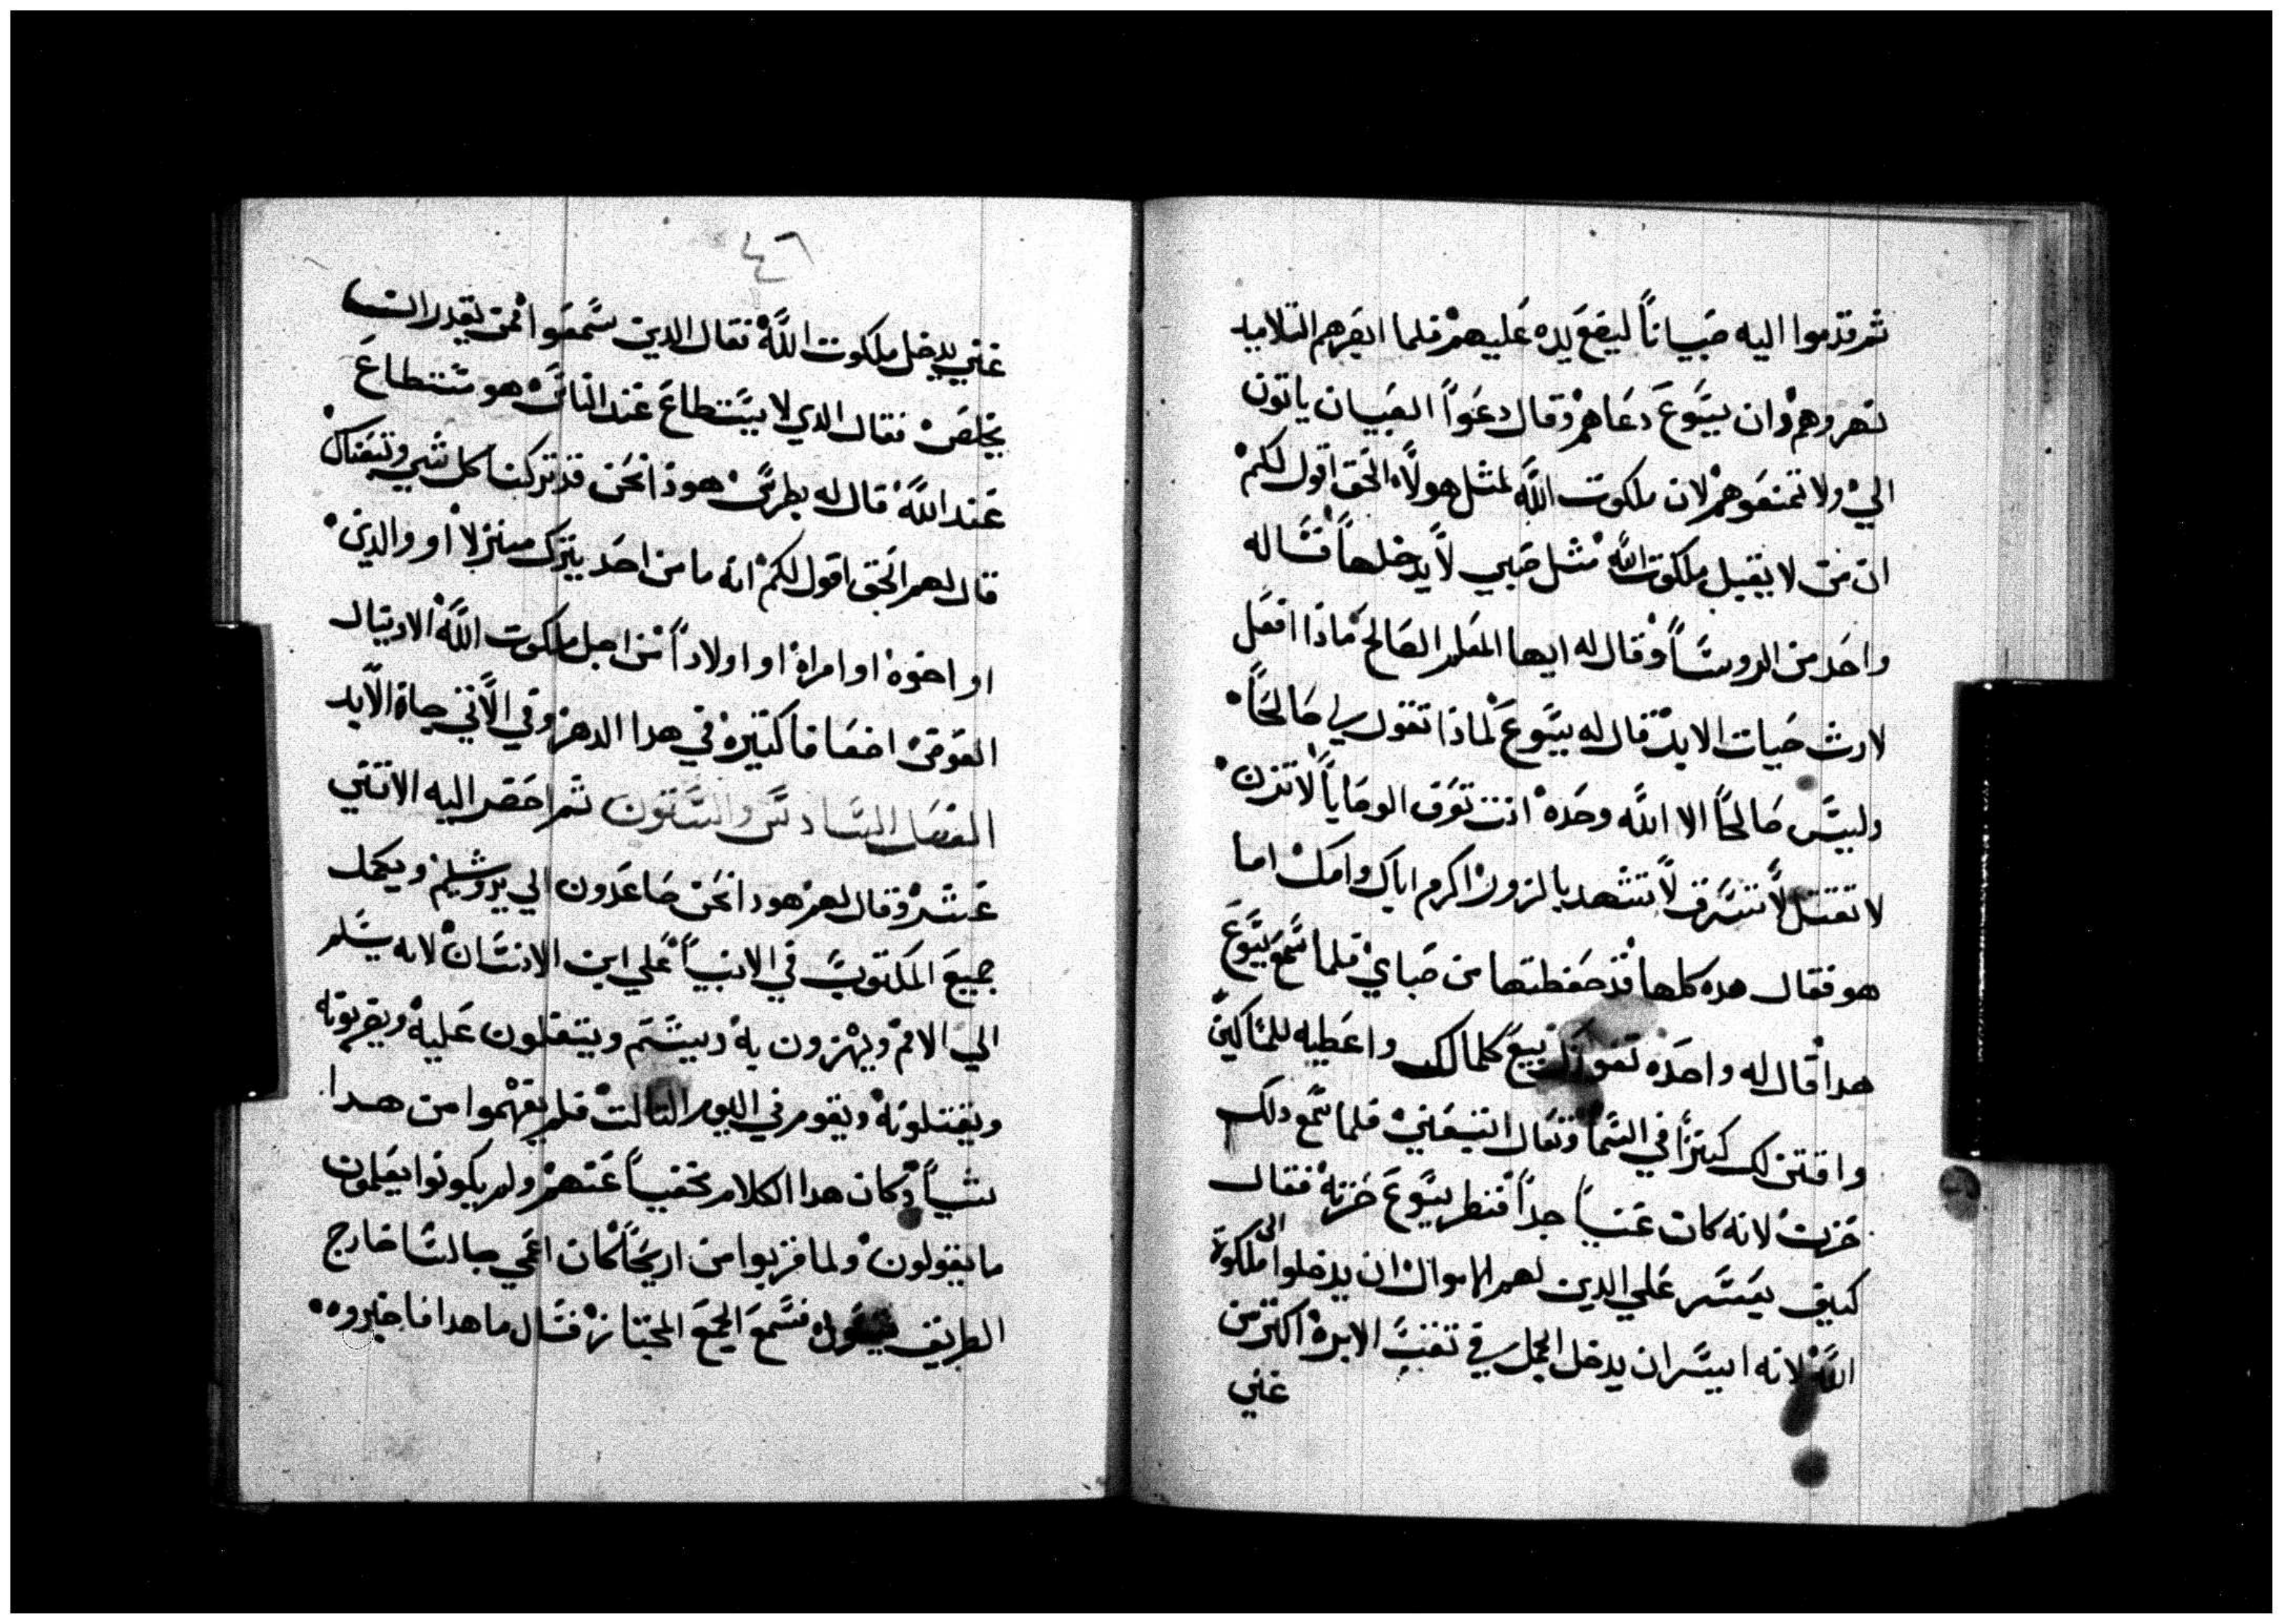 ثم قدموا اليه صبياناً ليضع يده عليهم فلما ابصرهم التلاميد
نهروهم وان يسوع دعاهم وقال دعوا الصبيان ياتون
الي ولا تمنعوهم لان ملكوت الله لمثل هولاء الحق اقول لكم
ان من لا يقبل ملكوت الله مثل صبي لا يدخلها فساله
واحد من الروسا وقال له ايها المعلم الصالح ماذا افعل
لارث حيات الابد قال له يسوع لماذا تقول لي صالحاً
وليس صالحاً الا الله وحده انت تعرف الوصايا لا تزن
لا تقتل لا تسرق لا تشهد بالزور اكرم اباك وامك اما
هو فقال هده كلها قد حفظتها من صباي فلما سمع يسوع
هدا قال له واحده تعوزك بيع كلمالك واعطيه للمساكين
واقتن لك كنزاً في السما وتعال اتبعني فلما سمع دلك
حزن لانه كان غنياً جداً فنظر يسوع حزنه فقال
كيف يعسر علي الدين لهم الاموال ان يدخلوا الى ملكوت
الله لانه ايسر ان يدخل الجمل في ثقب الابرة اكثر من
غني
٤٦
غني يدخل ملكوت الله فقال الدين سمعوا فمن يقدر
يخلص فقال الدي لا يستطاع عند الناس هو مستطاع
عند الله قال له بطرس هوذا نحن قد تركنا كل شي وتبعناك
قال لهم الحق اقول لكم انه ما من احد يترك منزلا او والدين
او اخوة او امراة او اولاداً من اجل ملكوت الله الا وينال
العوض اضعافا كثيرة في هدا الدهر وفي الاتي حياة الابد
الفصل السادس والستون ثم احضر اليه الاتني
عشر وقال لهم هودا نحن صاعدون الي يروشليم ويكمل
جميع المكتوب في الانبيا علي ابن الانسان لانه يسلم
الي الامم ويهزون به ويشتم ويتفلون عليه ويضربونه
ويقتلونه ويقوم في اليوم التالت فلم يفهموا من هدا
شياً وكان هدا الكلام مخفياً عنهم ولم يكونوا يعلمون
ما يقولون ولما قربوا من اريحا كان اعمي جالسا خارج
الطريق فسمع الجمع المجتاز فسال ما هدا فاخبروه